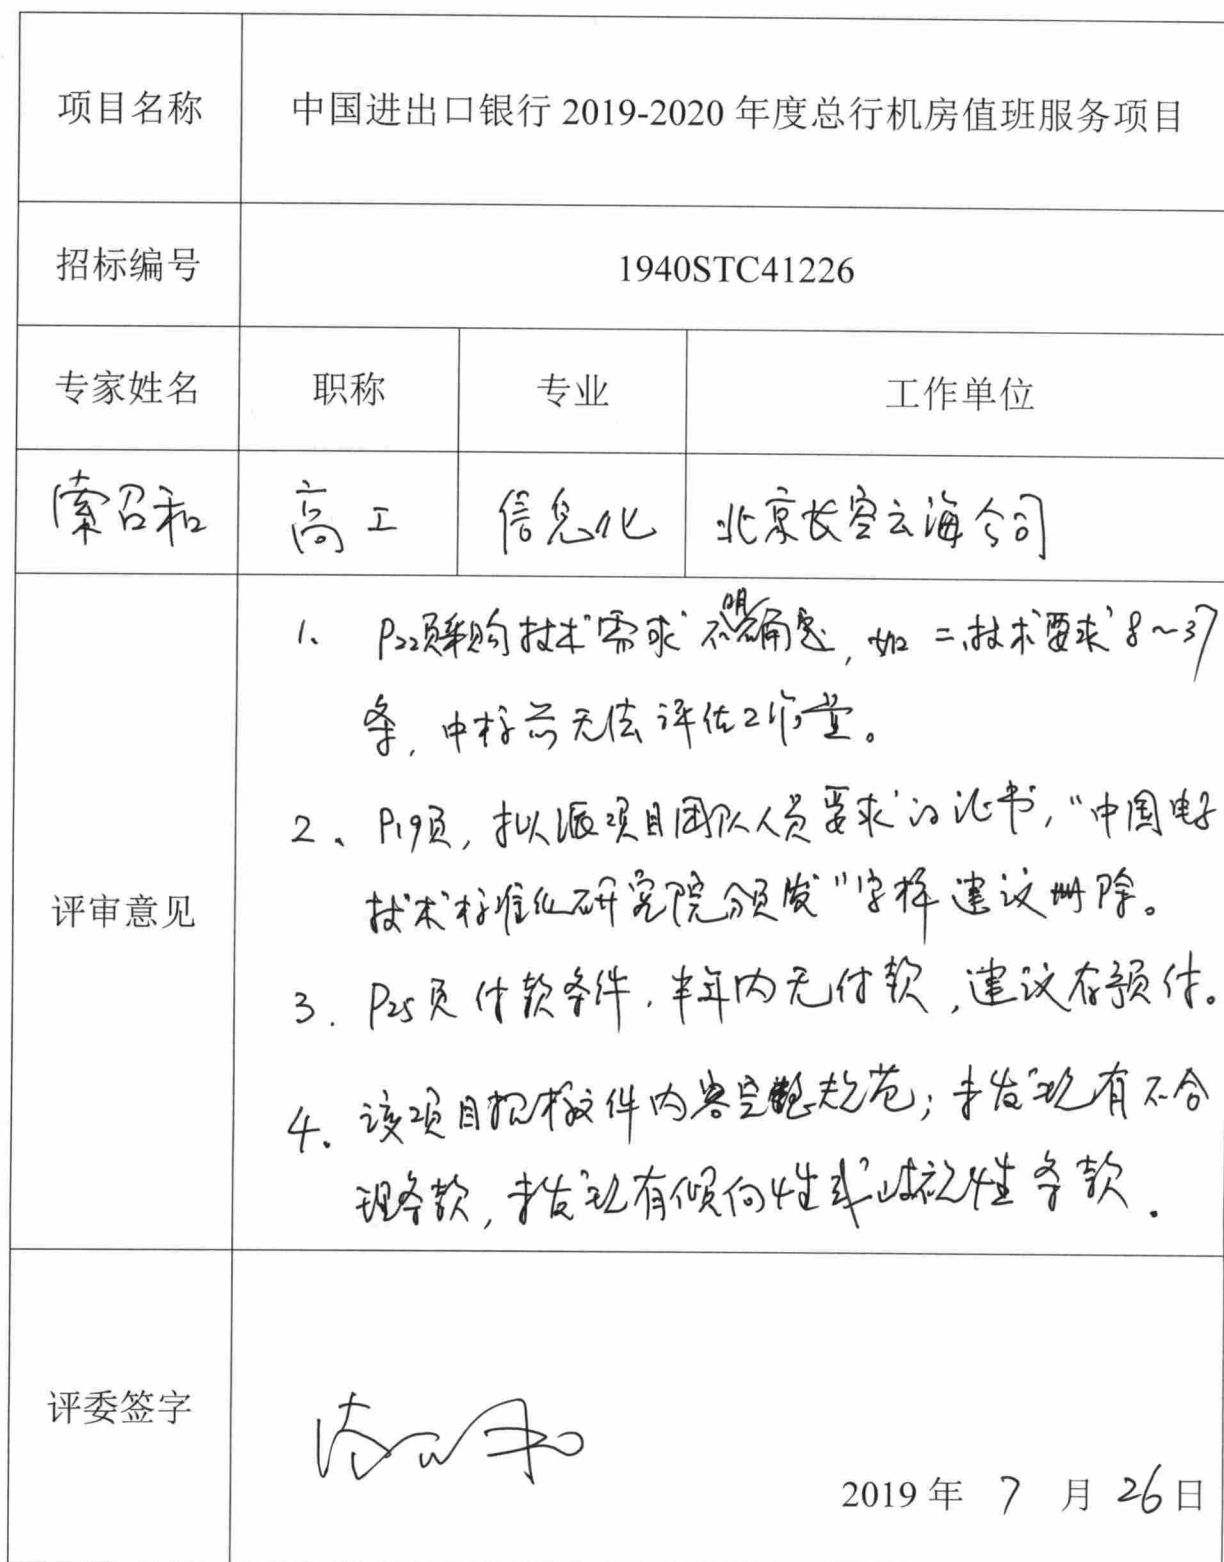 项目名称 中国进出口银行 2019-2020 年度总行机房值班服务项目
招标编号 1940STC41226
专家姓名 职称 专业 工作单位
索召和 高工 信息化 北京长容云海公司
评审意见
1、P22页采购技术需求不明确, 如二.技术要求8~37
条, 中标前无法评估工作量。
2、P19页, 拟派项目团队人员要求的证书, “中国电子
技术标准化研究院颁发”字样建议删除。
3. P25页付款条件, 半年内无付款, 建议有预付。
4. 该项目招标文件内容完整规范; 未发现有不合
理条款, 未发现有倾向性或歧视性条款.
评委签字
2019 年 7 月 26 日